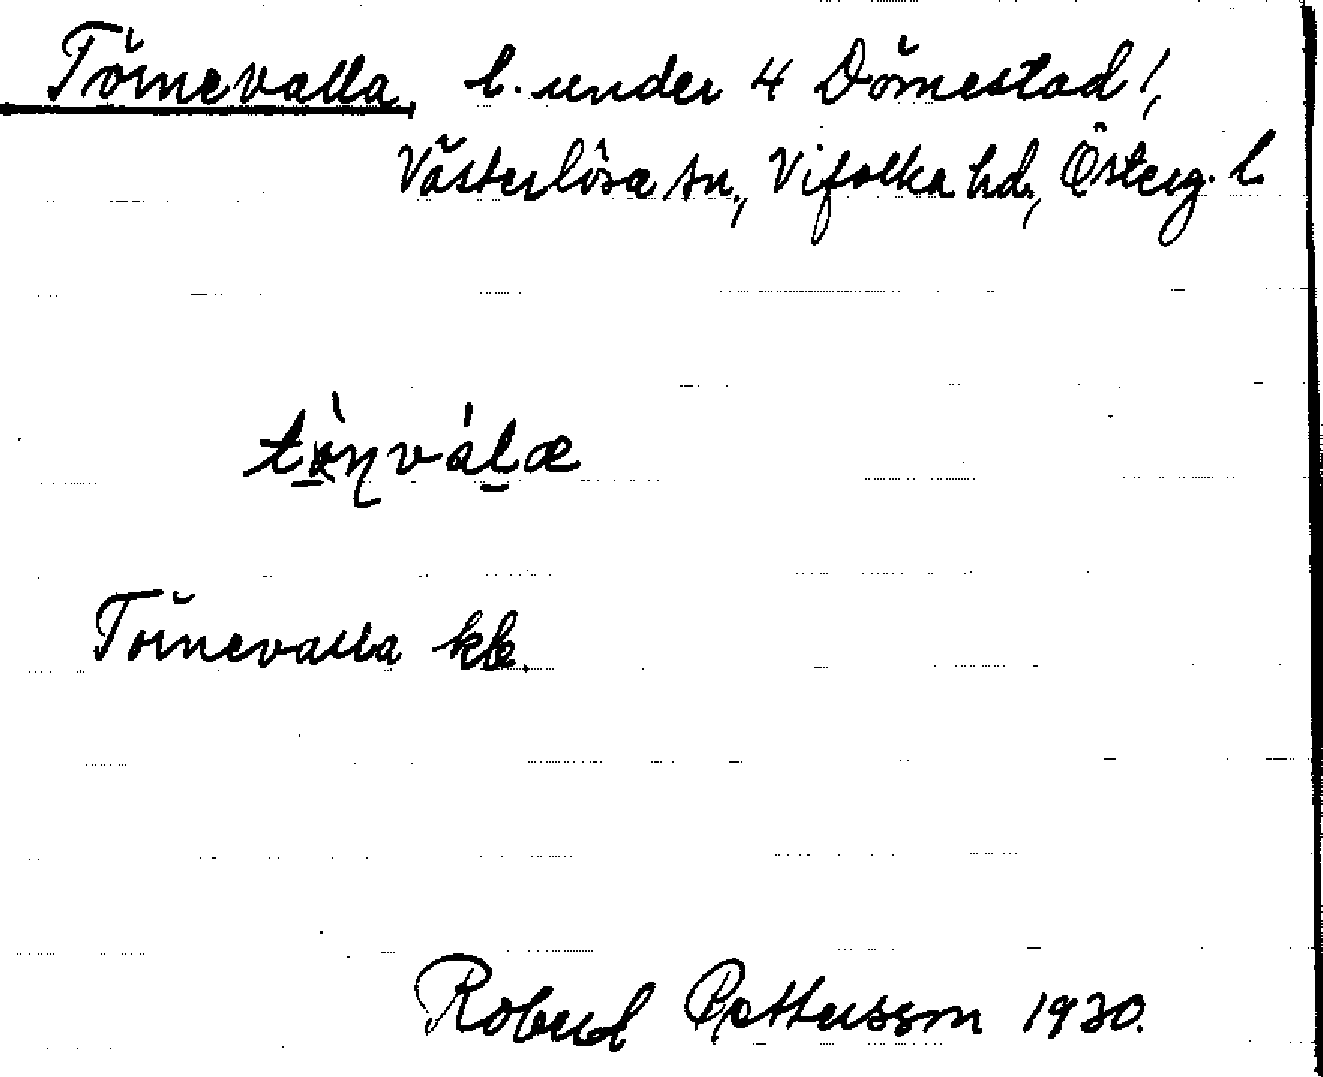 Törnevalla, l. under 4 Dömestad!,
Västerlösa sn., Vifolka hd., Österg. l.
Törnevalla kk.
Robert Pettersson 1930.